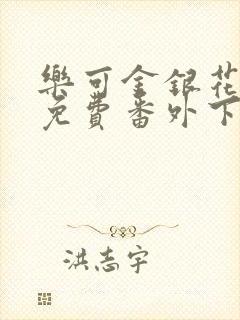 樂可金銀花
免費番外下
洪志宇